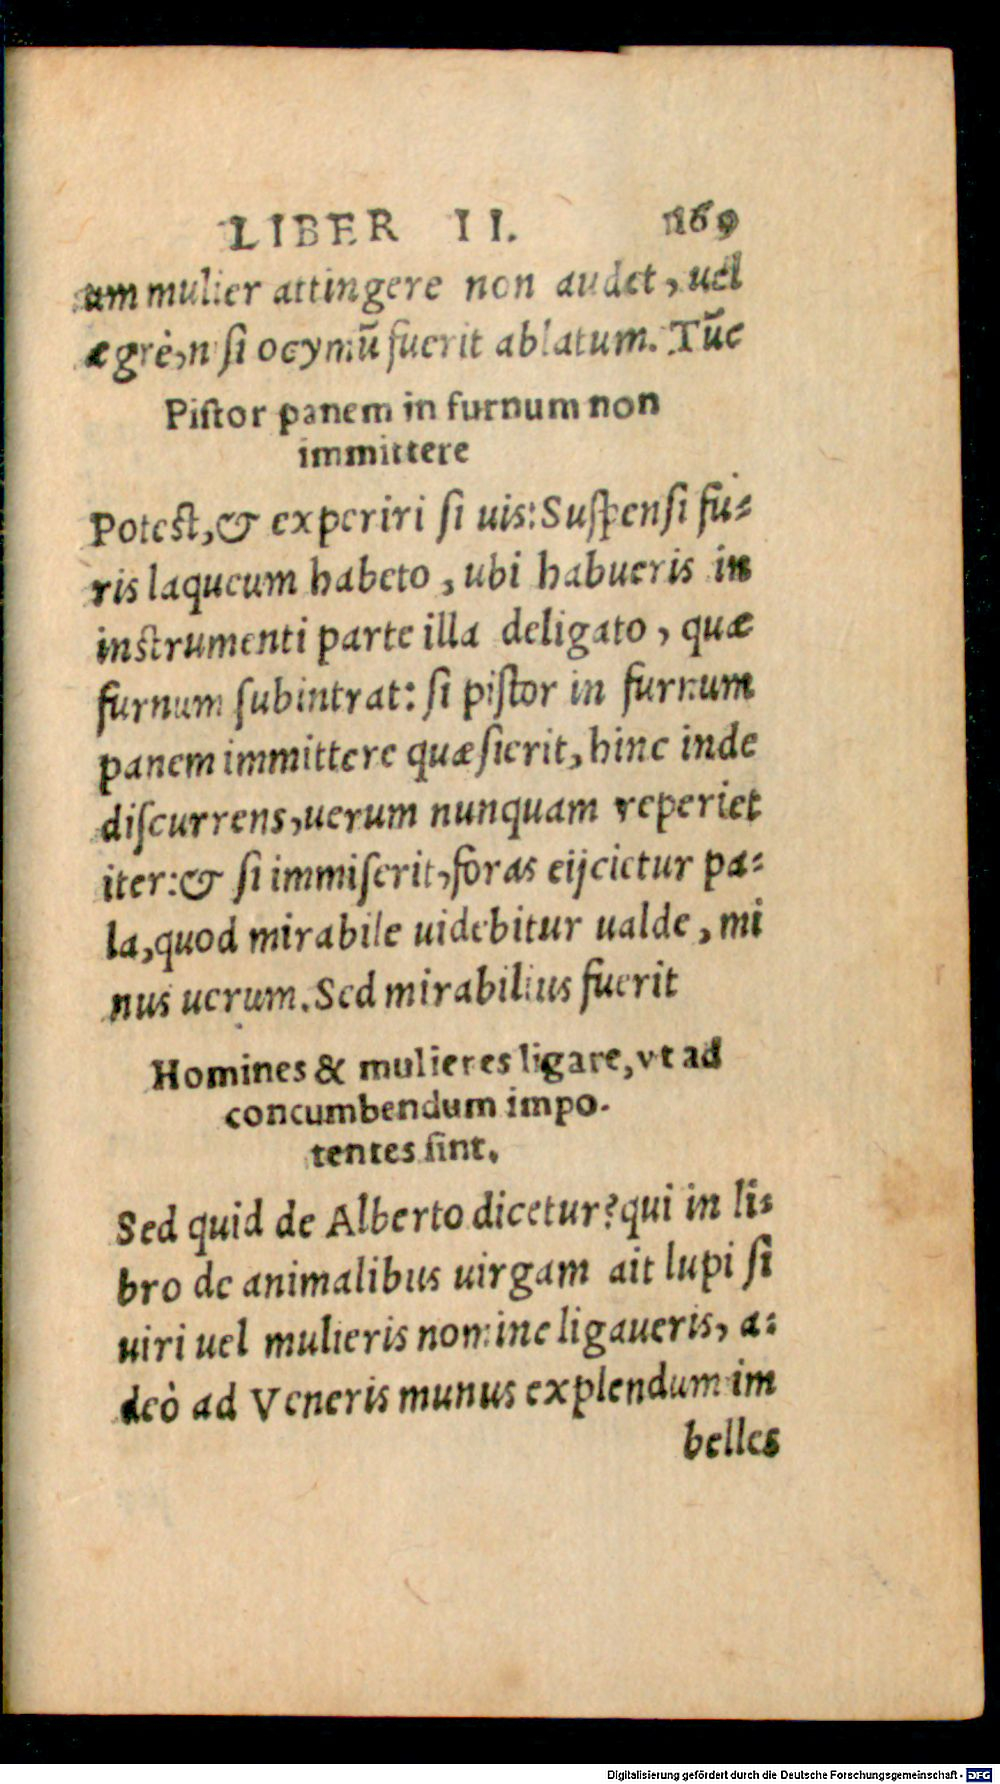 LIBER II. 169
um mulier attingere non audet, uel
ægrè, n si ocymũ fuerit ablatum. Tũc
Piſtor panem in furnum non
immittere
Poteſt, & experiri ſi uis: Suſpenſi fu-
ris laqueum habeto, ubi habueris in
inſtrumenti parte illa deligato, quæ
furnum ſubintrat: ſi piſtor in furnum
panem immittere quæſierit, hinc inde
diſcurrens, uerum nunquam reperiet
iter: & ſi immiſerit, foras eijcietur pa-
la, quod mirabile uidebitur ualde, mi
nus uerum. Sed mirabilius fuerit
Homines & mulieres ligare, vt ad
concumbendum impo-
tentes ſint.
Sed quid de Alberto dicetur? qui in li-
bro de animalibus uirgam ait lupi ſi
uiri uel mulieris nomine ligaueris, a-
deò ad Veneris munus explendum im
belles
Digitalisierung gefördert durch die Deutsche Forschungsgemeinschaft - DFG